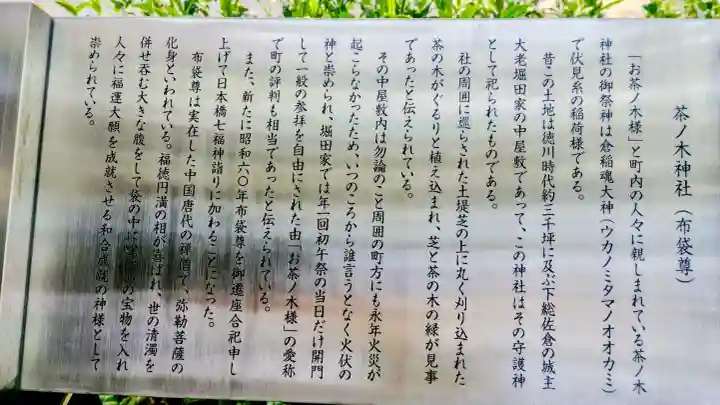 茶ノ木神社（布袋尊）
「お茶ノ木様」と町内の人々に親しまれている茶ノ木
神社の御祭神は倉稲魂大神（ウカノミタマノオオカミ）
で伏見系の稲荷様である。
昔この土地は徳川時代約三千坪に及ぶ下総佐倉の城主
大老堀田家の中屋敷であって、この神社はその守護神
として祀られたものである。
社の周囲に巡らされた土堤芝の上に丸く刈り込まれた
茶の木がぐるりと植え込まれ、芝と茶の木の緑が見事
であったと伝えられている。
その中屋敷内は勿論のこと周囲の町方にも永年火災が
起こらなかったため、いつのころから誰言うとなく火伏の
神と崇められ、堀田家では年一回初午祭の当日だけ開門
して一般の参拝を自由にされた由「お茶ノ木様」の愛称
で町の評判も相当であったと伝えられている。
また、新たに昭和六〇年布袋尊を御遷座合祀申し
上げて日本橋七福神詣りに加わることになった。
布袋尊は実在した中国唐代の禅僧で、弥勒菩薩の
化身といわれている。福徳円満の相が喜ばれ、世の清濁を
併せ呑む大きな腹をして袋の中に の宝物を入れ
人々に福運大願を成就させる和合成就の神様として
崇められている。